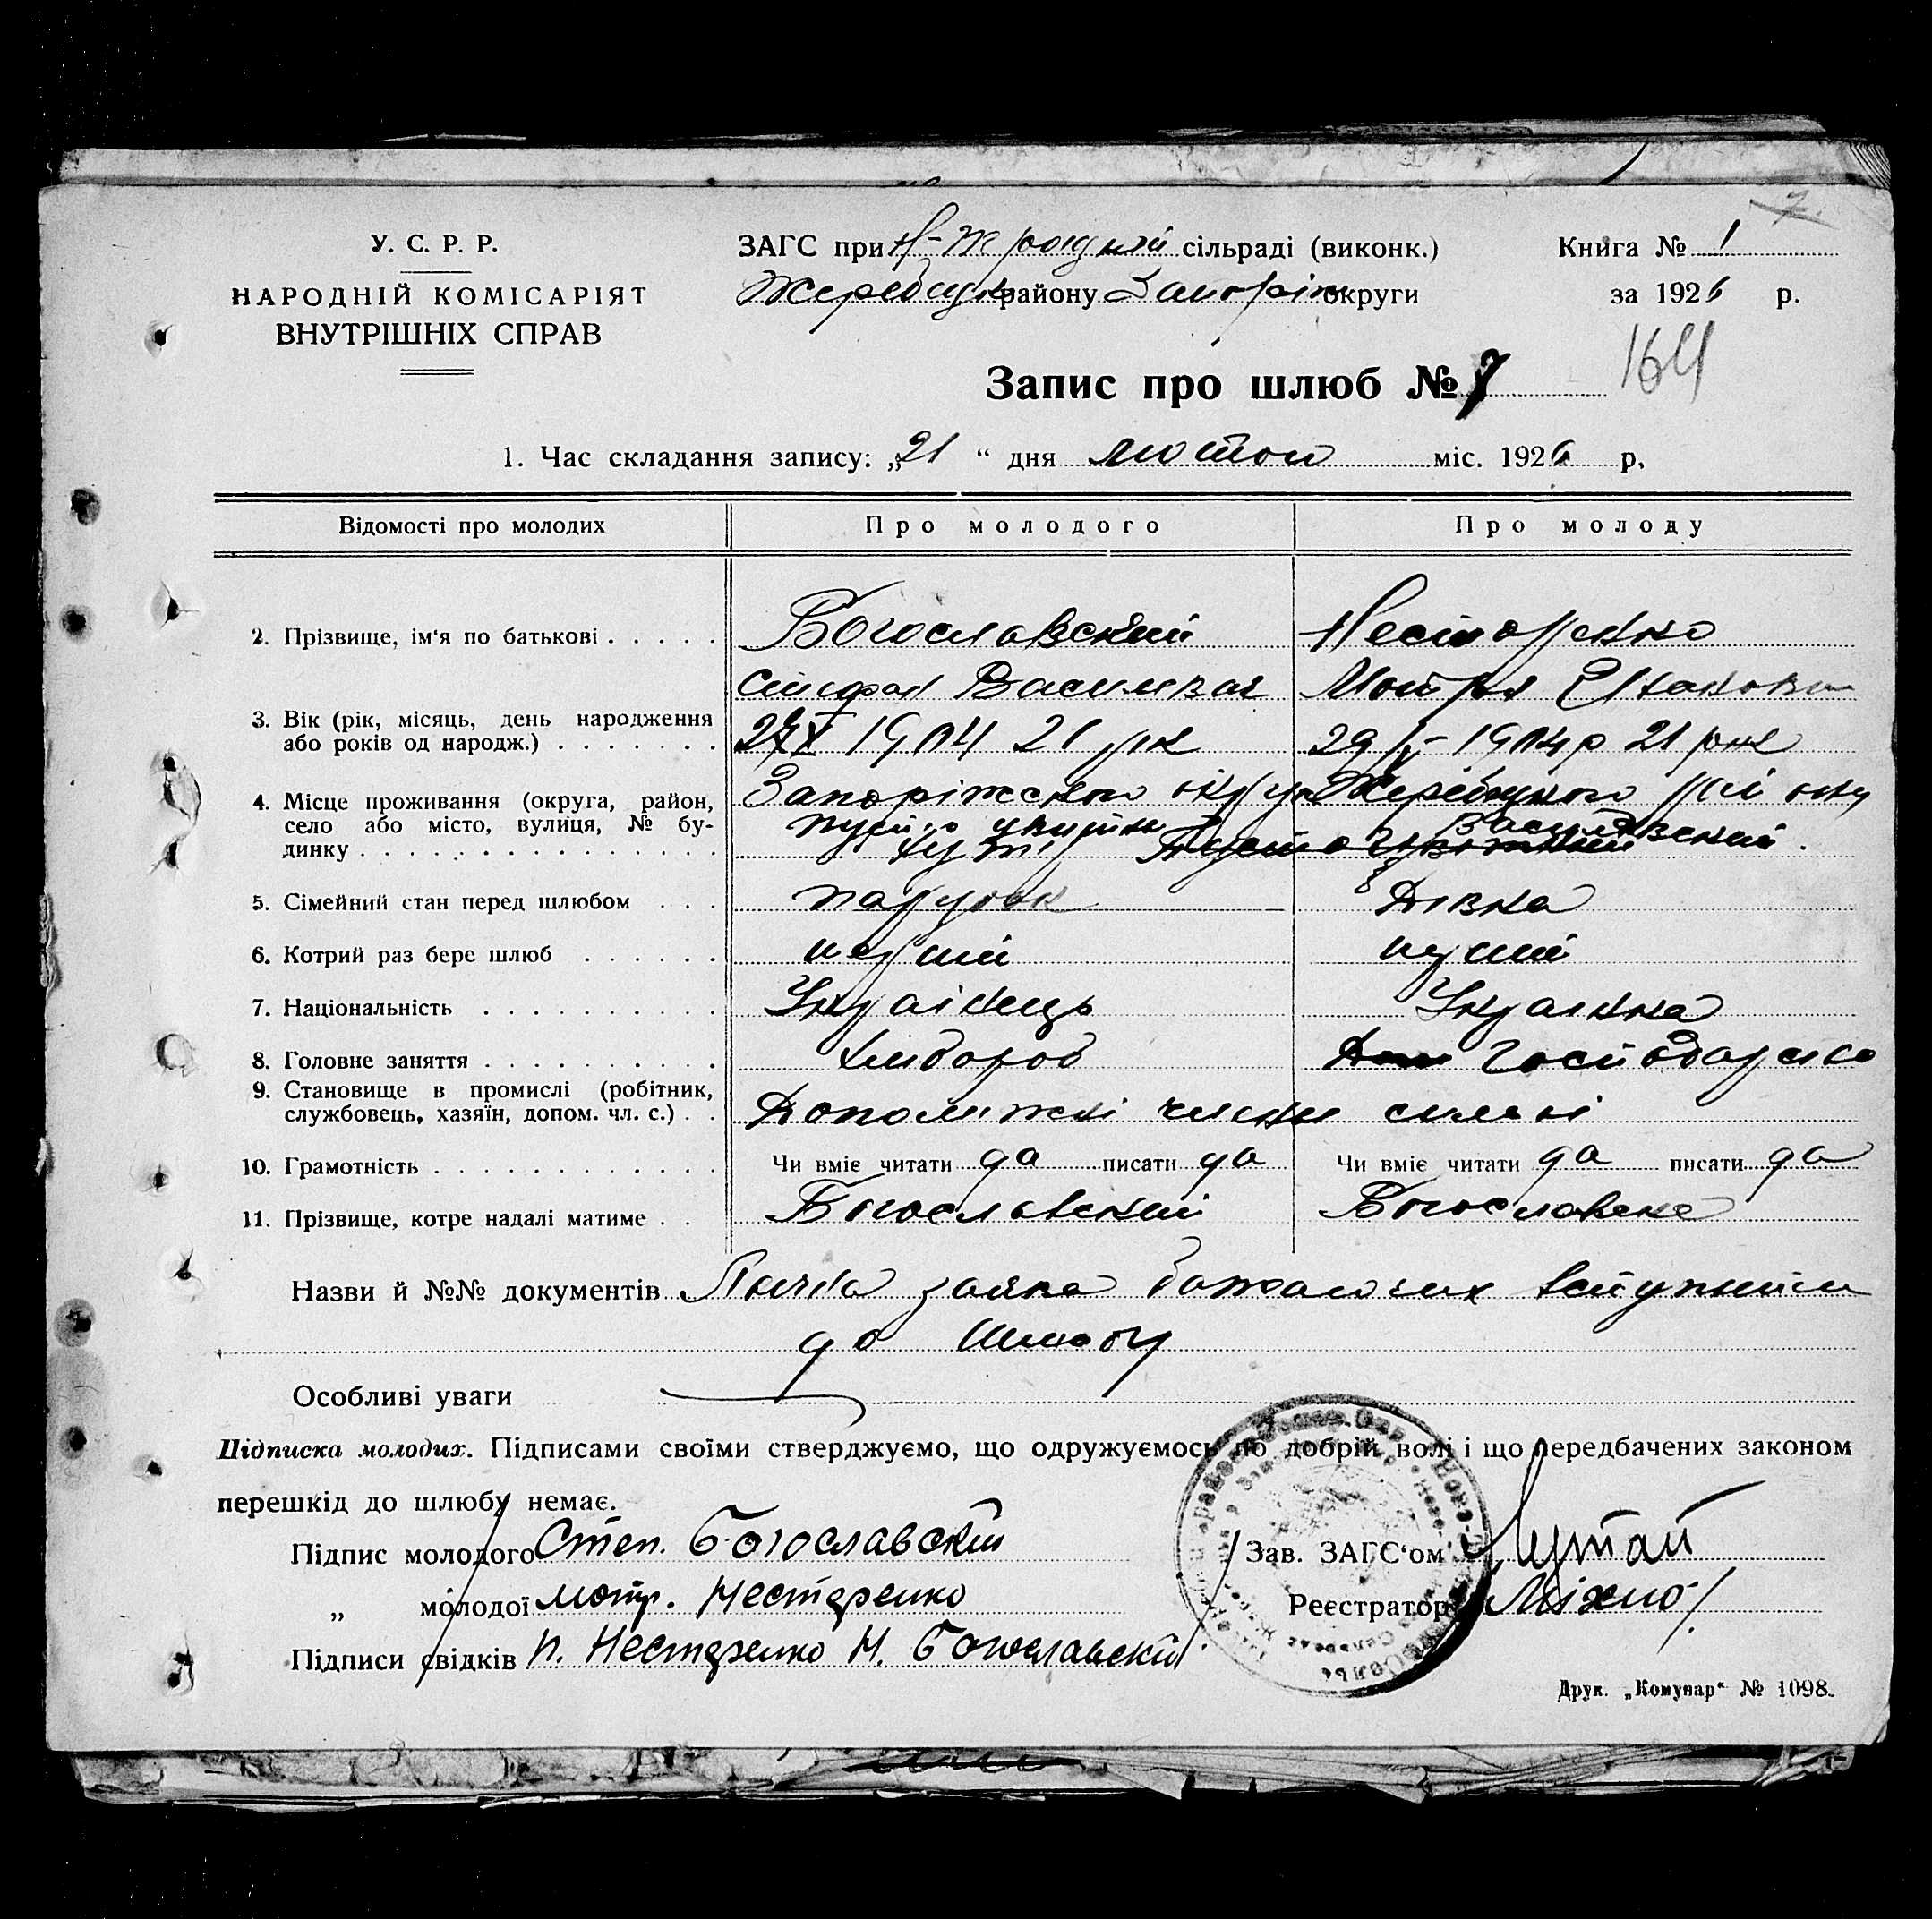 7
У. С. Р. Р.
НАРОДНІЙ КОМІСАРІЯТ
ВНУТРІШНІХ СПРАВ
ЗАГС при сільраді (виконк.)
району округи
Книга № 1
за 1926 р.
164
Запис про шлюб № 7
1. Час складання запису: „21“ дня лютого міс. 1926 р.
Відомості про молодих Про молодого Про молоду
2. Прізвище, ім'я по батькові . . . . . Богославский Несторенко
Василивич Мотря
3. Вік (рік, місяць, день народження
або років од народж.) . . . . . . . 1904 21 рік 29 1904 р 21 рік
4. Місце проживання (округа, район, Запоріжскои округи
село або місто, вулиця, № бу-
динку . . . . . . . . . . . . . . . .
5. Сімейний стан перед шлюбом . . . парубок Дівка
6. Котрий раз бере шлюб . . . . . . перший
7. Національність . . . . . . . . . . Українець Українка
8. Головне заняття . . . . . . . . . . хлибороб
9. Становище в промислі (робітник,
службовець, хазяїн, допом. чл. с.) . . Допоміжні члени
10. Грамотність . . . . . . . . . . . . Чи вміє читати да писати да Чи вміє читати да писати да
11. Прізвище, котре надалі матиме . . Богославский Богославска
Назви й №№ документів заява бажаючих вступити
до шлюбу
Особливі уваги
Підписка молодих. Підписами своїми стверджуємо, що одружуємось по добрій волі і що передбачених законом
перешкід до шлюбу немає.
Підпис молодого Степ. Богославский
„ молодої Мотр. Нестеренко
Підписи свідків П. Нестеренко Н. Богославский
Зав. ЗАГС'ом
Реєстратор
Друк. „Комунар“ № 1098.